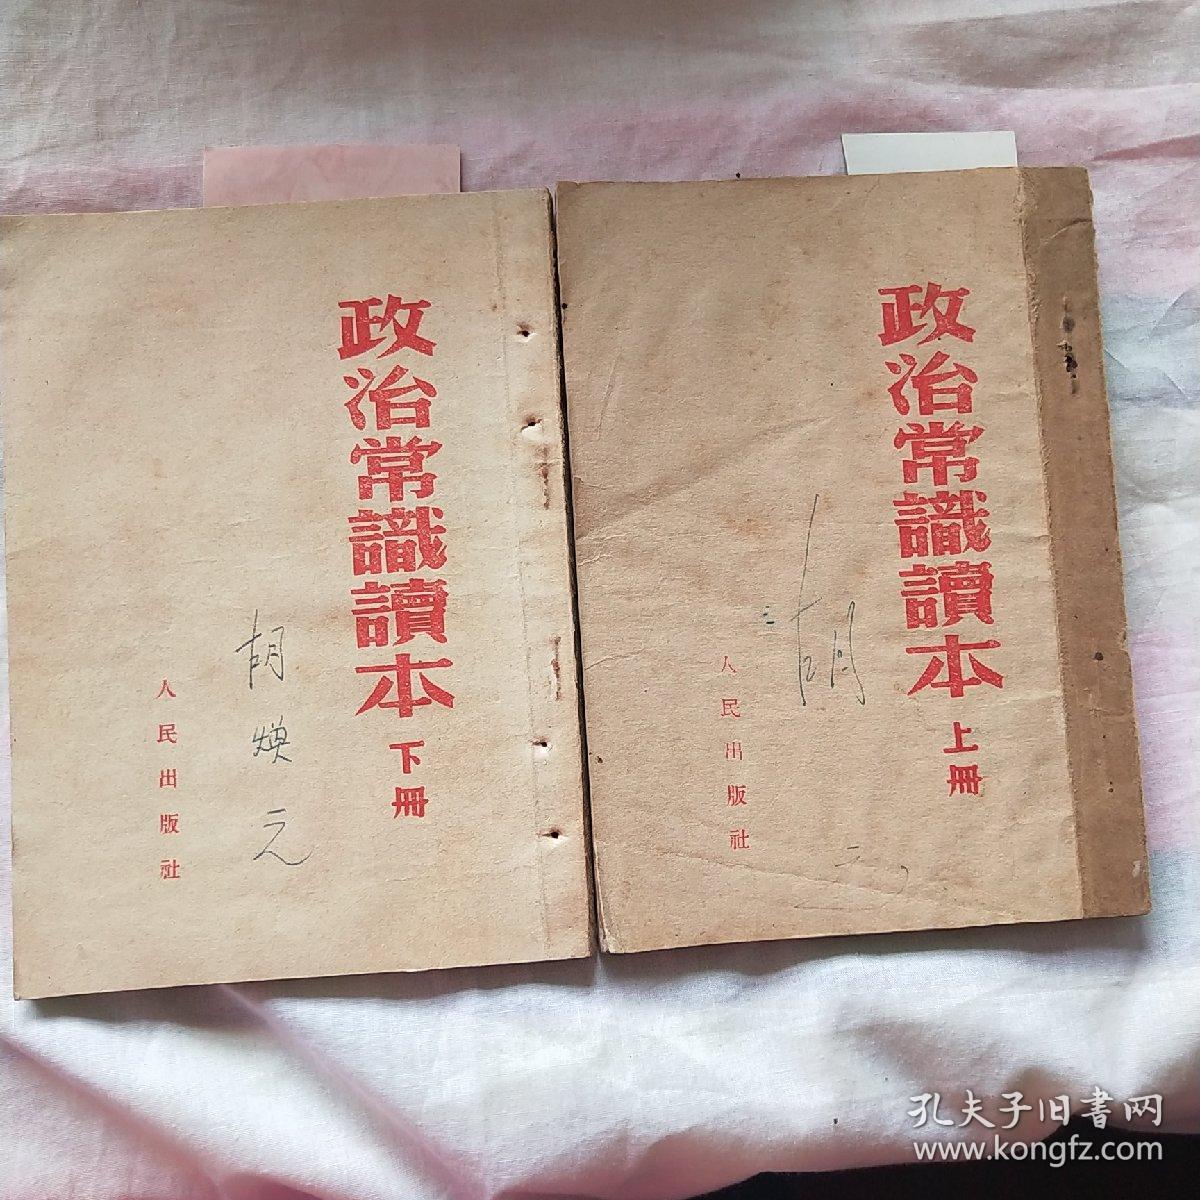 政治常識讀本
上册
人民出版社
胡
元
政治常識讀本
下册
人民出版社
胡煥元
孔夫子旧書网
www.kongfz.com